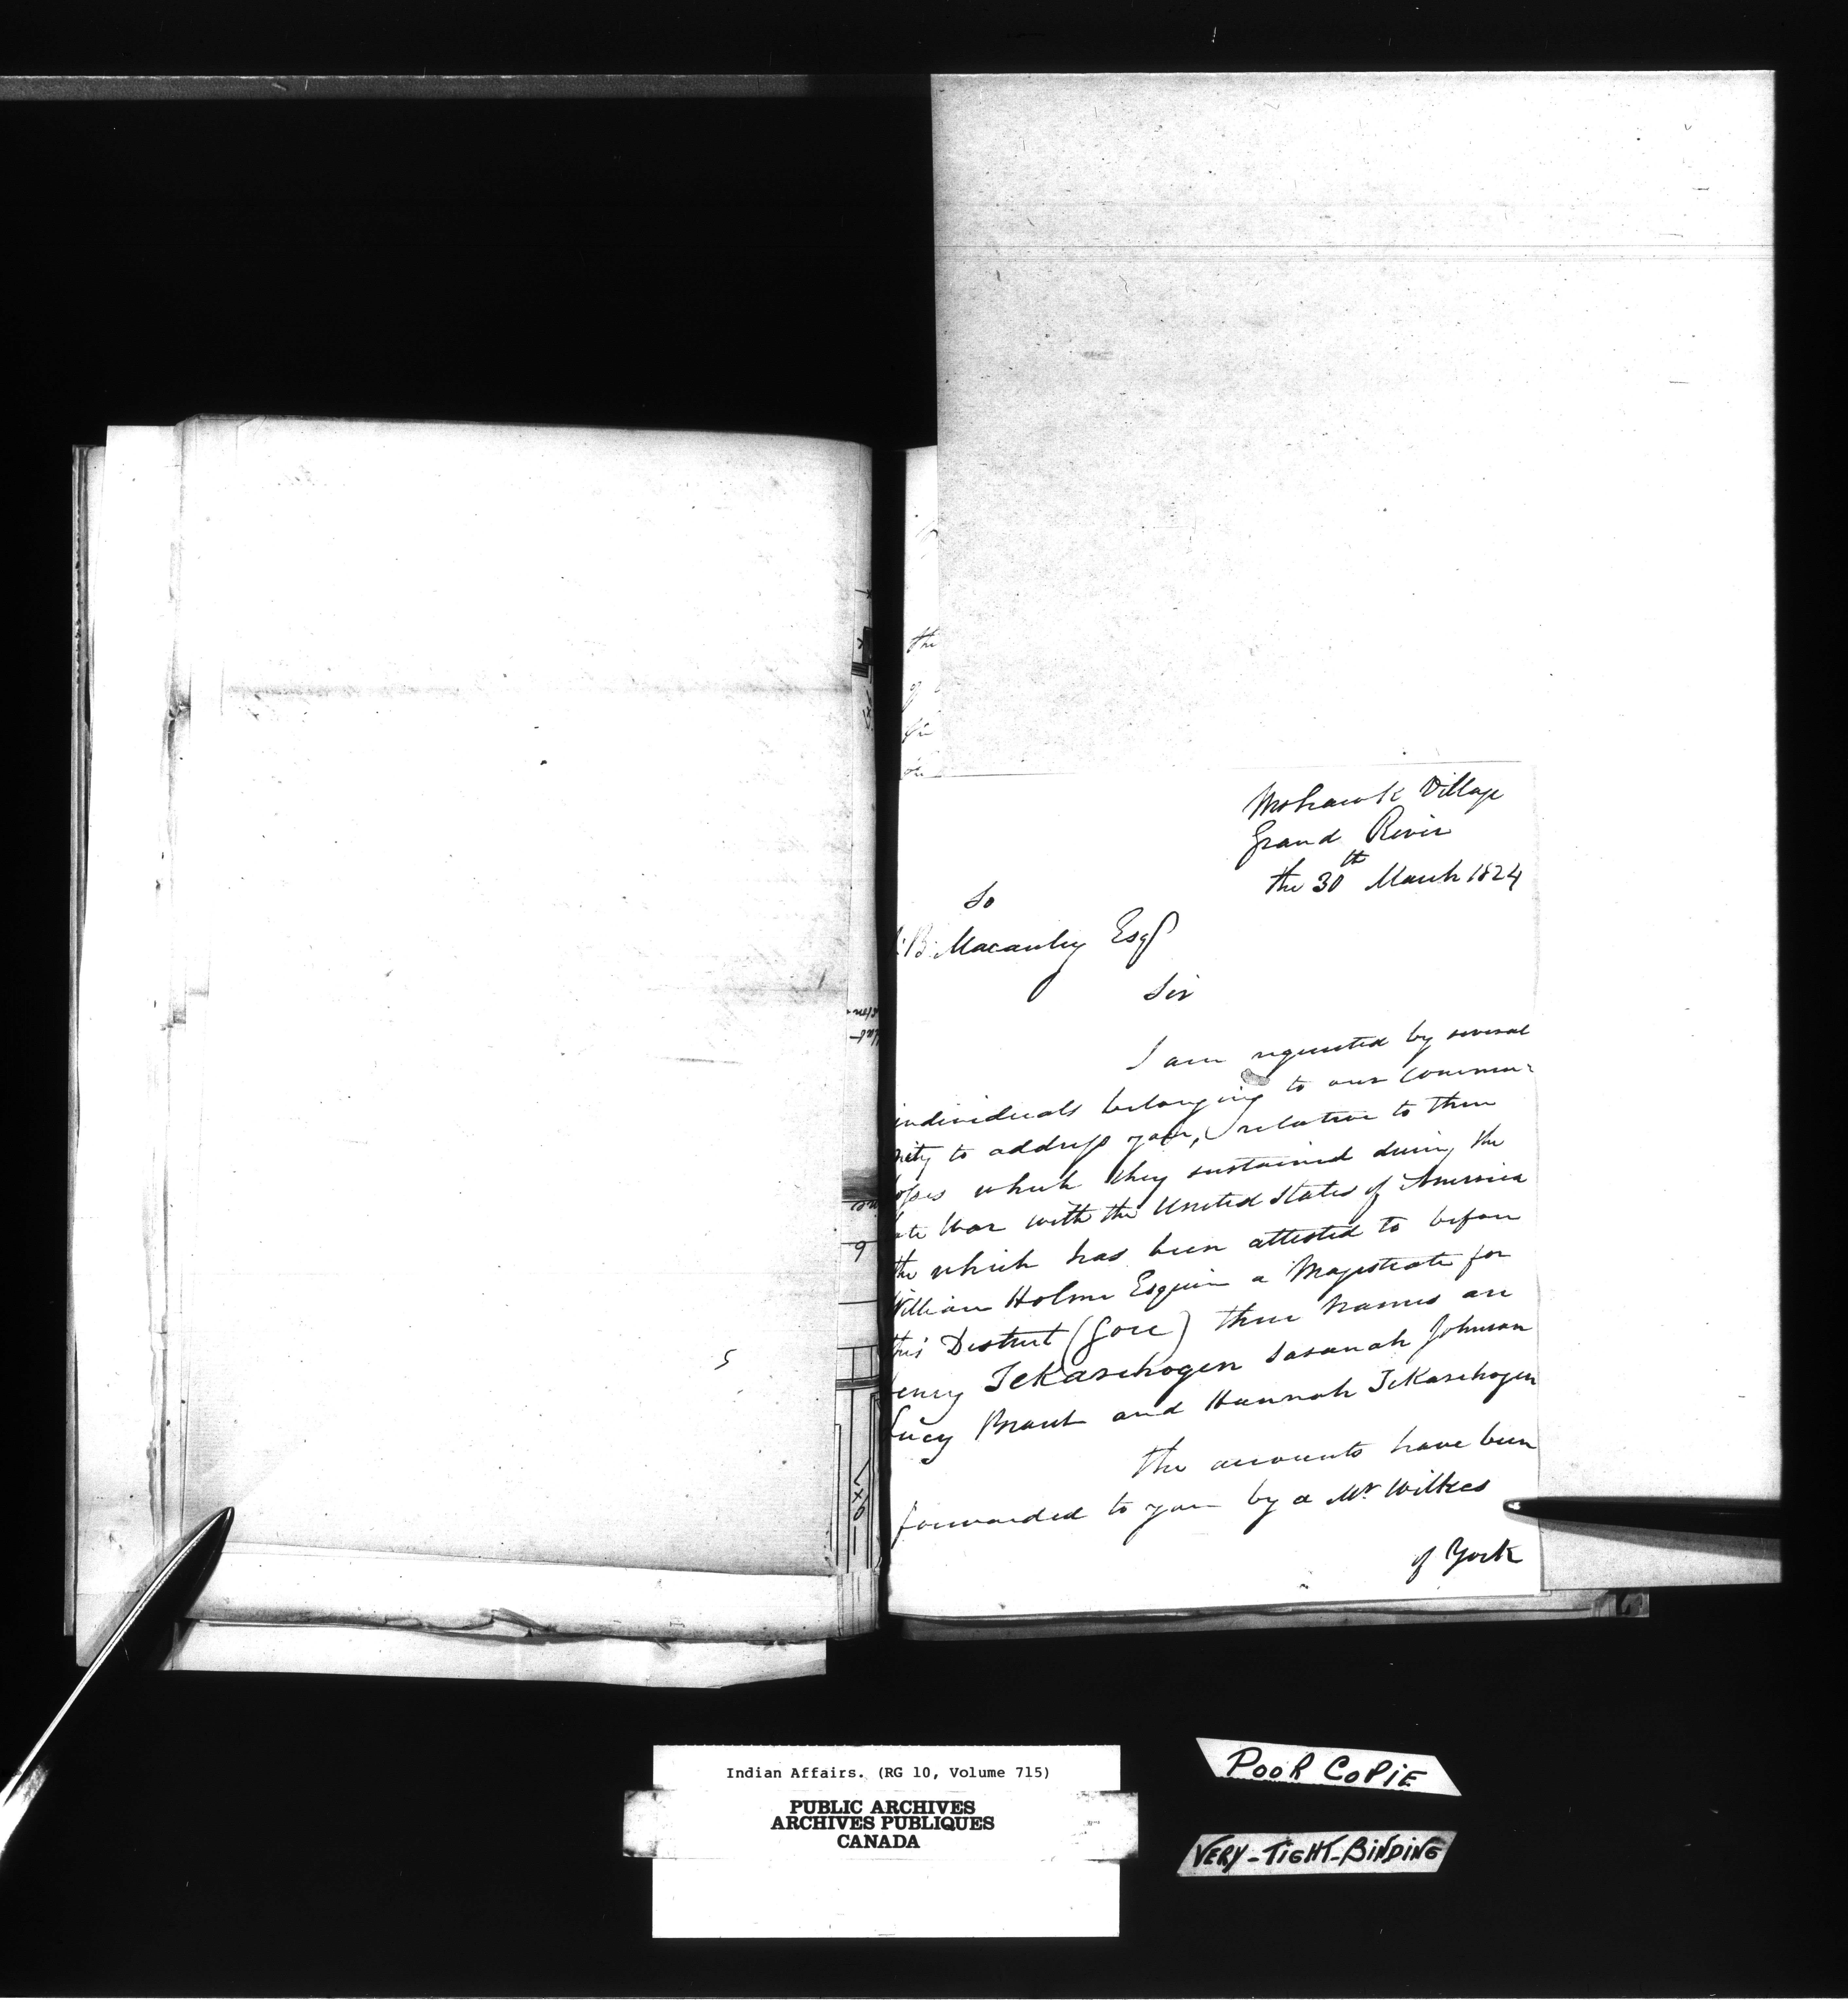 Mohawk Village
Grand River
the 30th March 1824
To
B. Macauley Esqr
Sir
I am requested by several
individuals belonging to our commu-
nity to address you, relative to their
losses which they sustained during the
late War with the United States of America
the which has been attested to before
William Holme Esquire a Magistrate for
this District (Gore) their names are
Henry Tekarihogen Susanah Johnson
Lucy Brant and Hannah Tekarihogen
The accounts have been
forwarded to you by a Mr. Wilkes
of York
the
5
6
6x7
Indian Affairs. (RG 10, Volume 715)
PUBLIC ARCHIVES
ARCHIVES PUBLIQUES
CANADA
POOR COPIE
VERY-TIGHT-BINDING